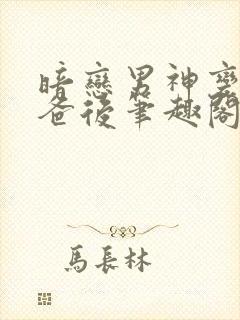 暗戀男神
爸後筆趣閣
馬長林